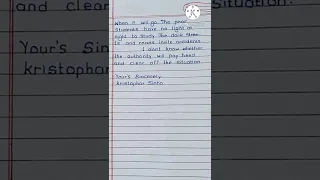 and clear
situation.
Your's Sin
kristophar
when it will go. The poor
students have no light at
night to study. The dark stree-
ts and roads invite accidents.
I don't know whether
the authority will pay heed
and clear off the situation.
Your's Sincerely
kristophar Sinha